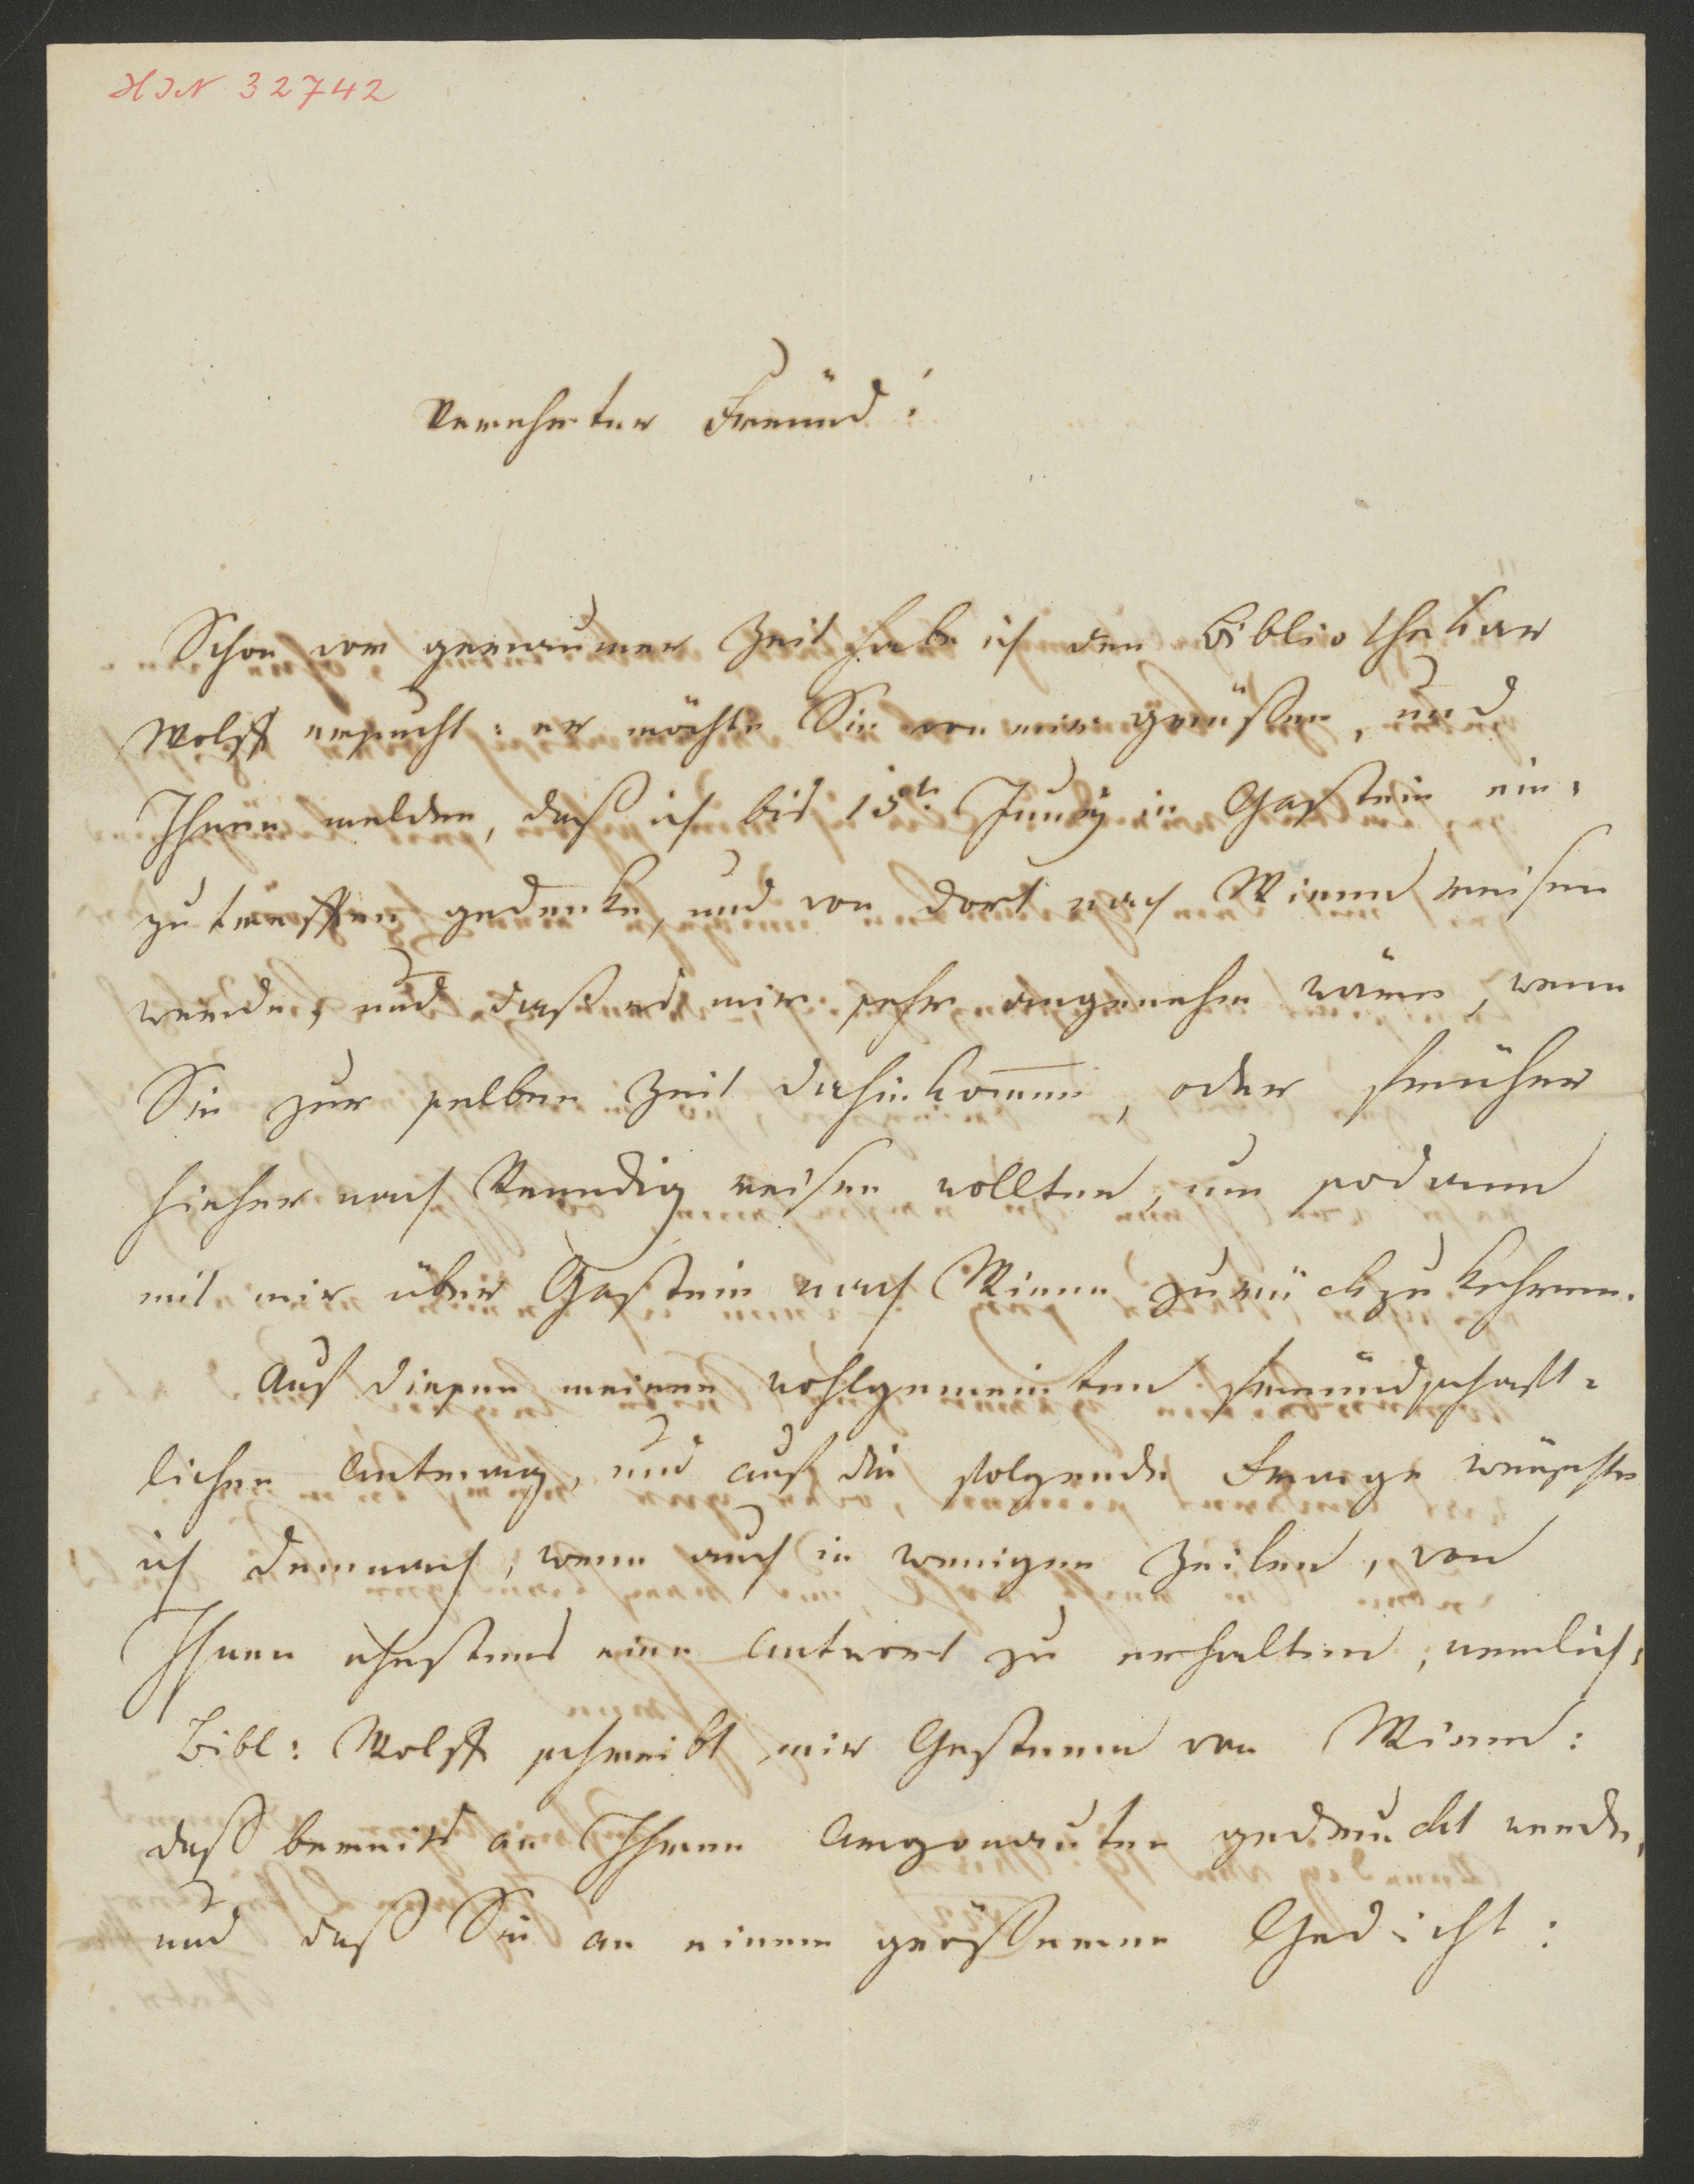 HIN 32742
Verehrter Freünd!
Schon vor geraumer Zeit habe ich den Bibliothekar
Wolff ersucht: er möchte Sie von mir grüßen, und
Ihnen melden, daß ich bis 15t. Juny in Gastein ein-
zutreffen gedenke, und von dort nach Wienn reisen
werde, und daß es mir sehr angenehm wäre, wenn
Sie zur selben Zeit dahinkom̄en, oder früher
hieher nach Venedig reisen wollten, um sodann
mit mir über Gastein nach Wienn zurückzukehren.
Auf diesen meinen wohlgemeinten freündschaft-
lichen Antrag, und auf die folgende Frage wünschte
ich demnach, wenn auch in wenigen Zeilen, von
Ihnen ehestens eine Antwort zu erhalten, nemlich:
Bibl: Wolff schreibt mir Gestern von Wienn:
daß bereits an Ihren Argonauten gedruckt werde,
und daß Sie an einem größeren Gedicht: